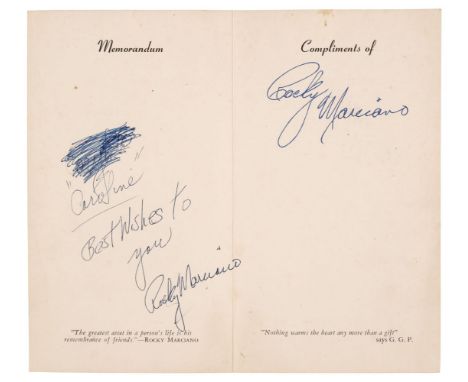 Memorandum
"Caroline"
Best Wishes to
you
Rocky Marciano
"The greatest asset in a person's life is his
remembrance of friends."—ROCKY MARCIANO
Compliments of
Rocky Marciano
"Nothing warms the heart any more than a gift"
says G. G. P.